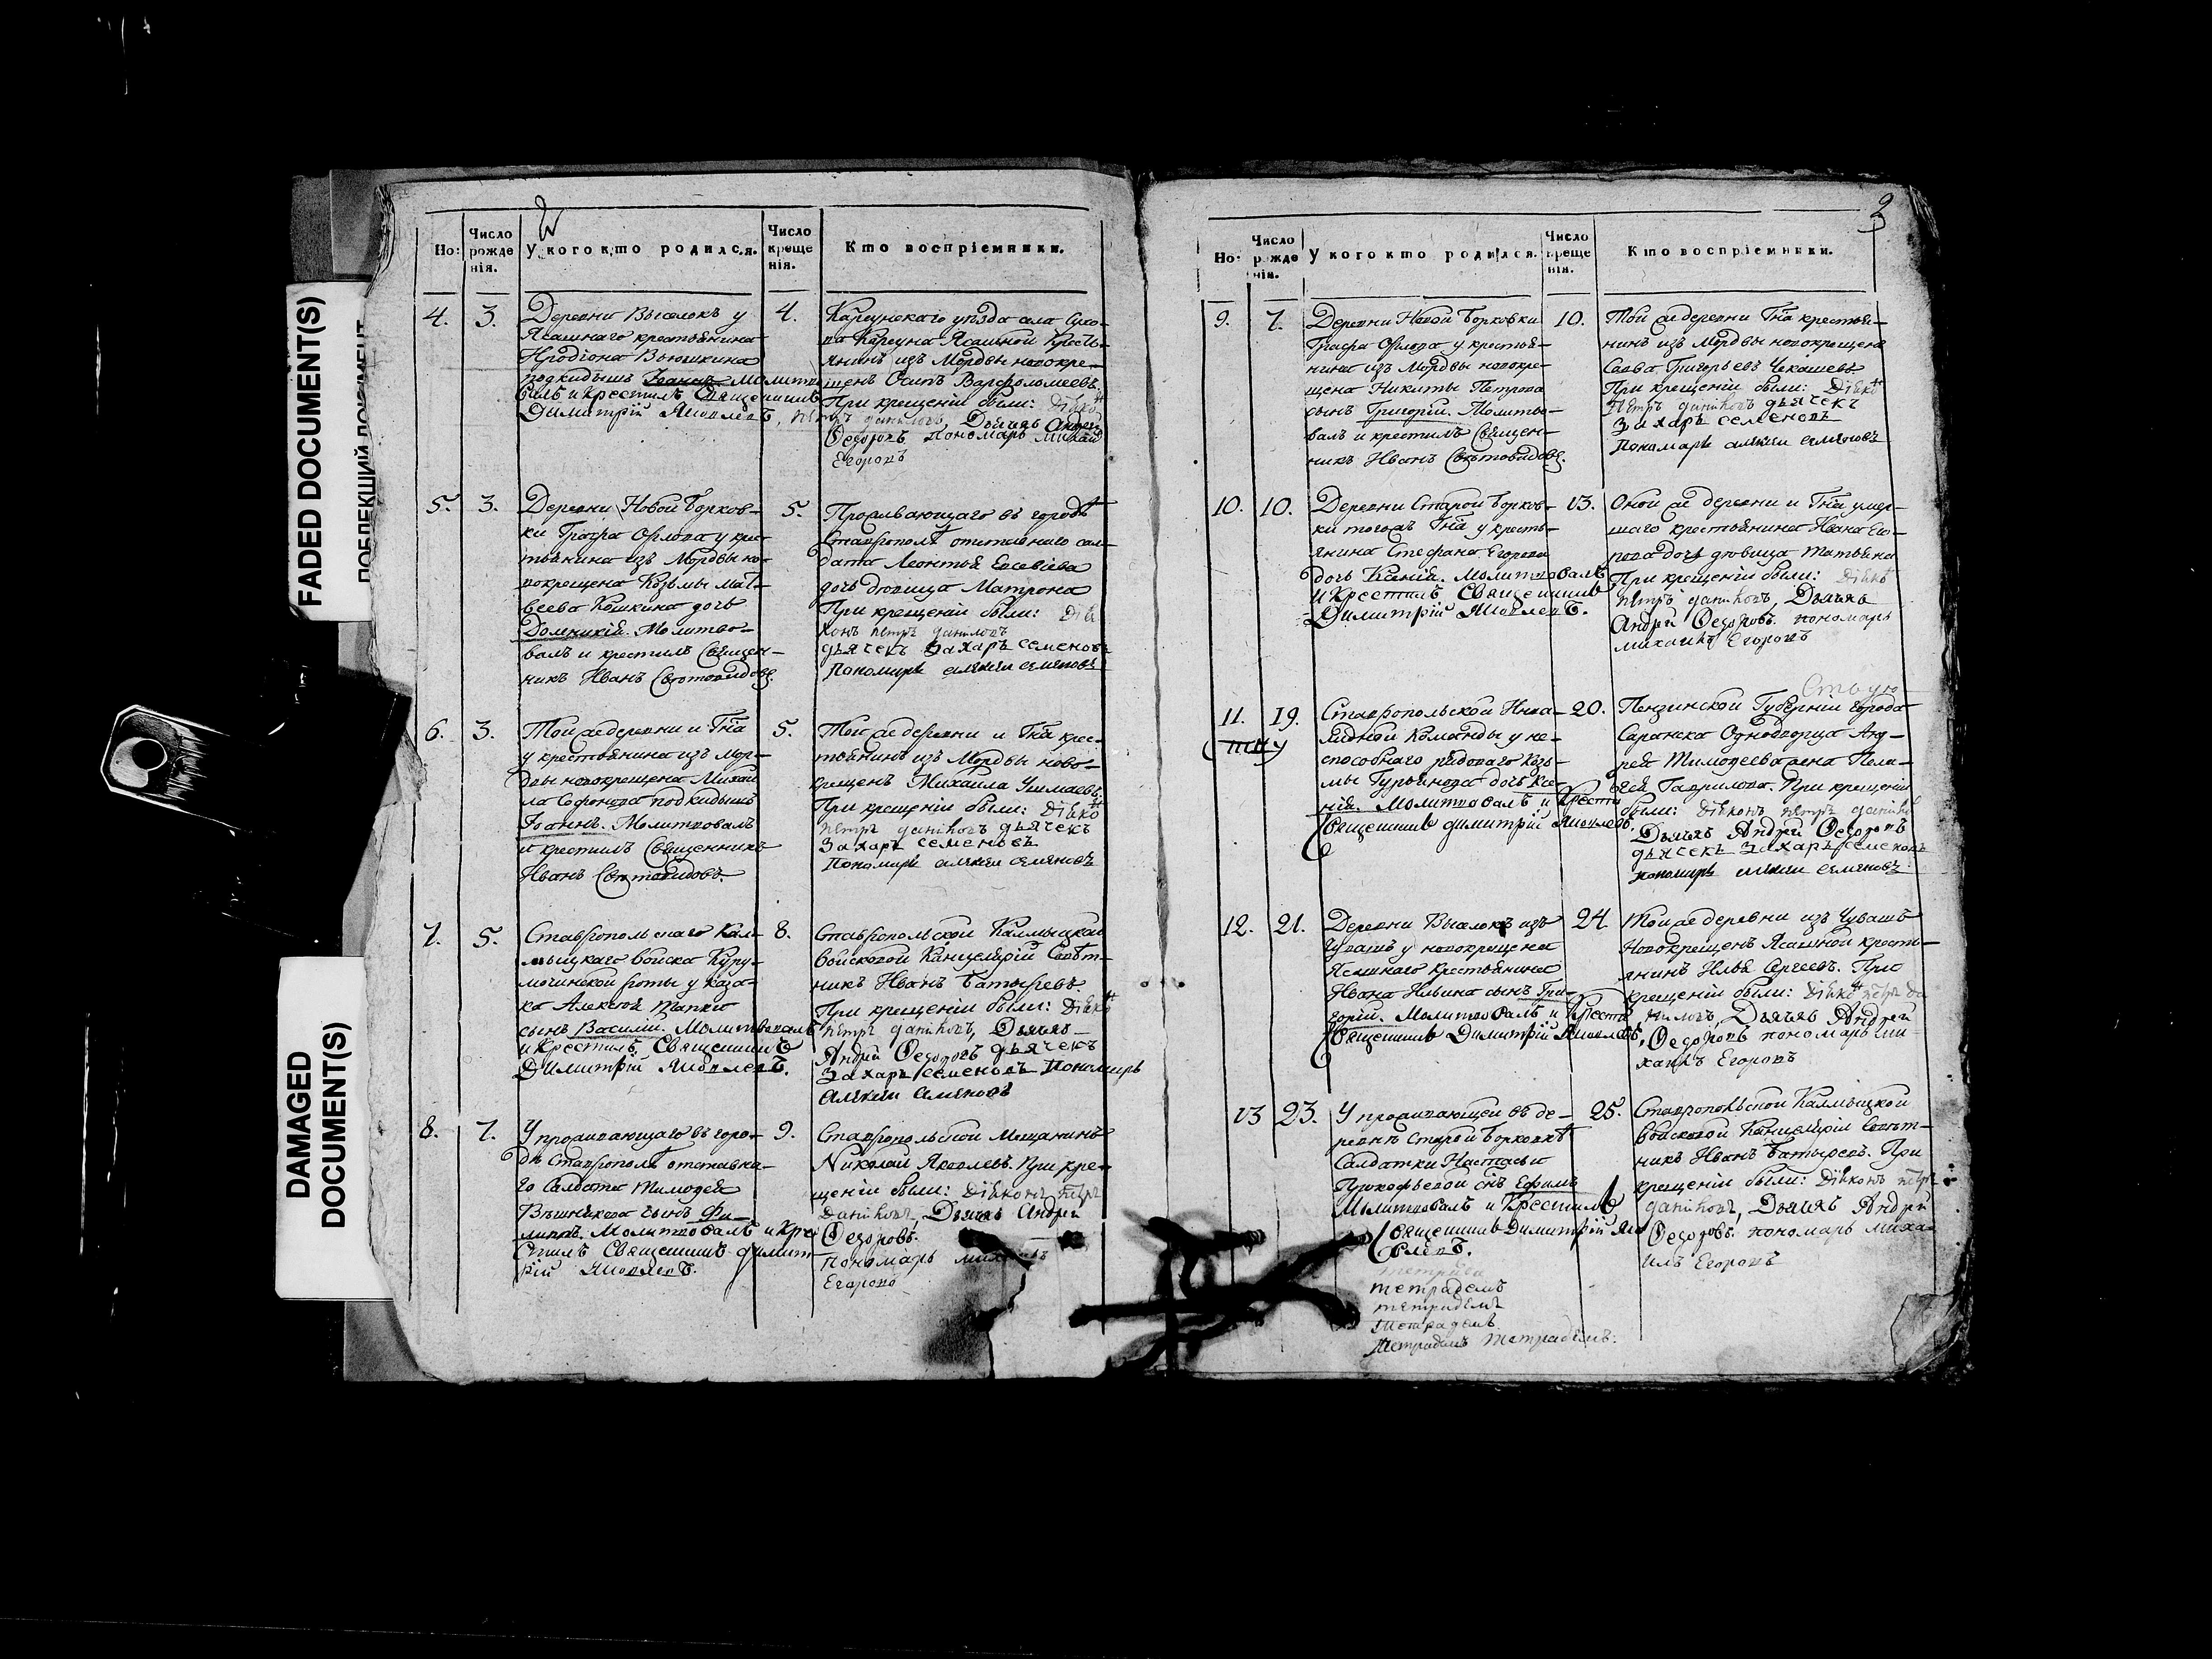 FADED DOCUMENT(S)
DAMAGED
DOCUMENT(S)
Но:
Число
рожде
нія.
У кого кто родился.
Число
креще
нія.
Кто воспріемники.
4.
3.
Деревни Выселокъ у
Ясашнаго крестьянина
Иродіона Вьюшкина
подкидышъ Іоаннъ молитво
валъ и крестилъ Священникъ
Димитрій Яковлевъ,
4.
Карсунскаго уѣзда села Сухо-
ва Карсуна Ясашной кресть-
янинъ изъ Мордвы новокре-
щенъ Осипъ Варфоломеевъ.
При крещеніи были: Діяко
петръ даниловъ, Дьячекъ Андрей
Ѳедоровъ, пономарь михаи
Егоровъ
5.
3.
Деревни Новой Борков-
ки Графа Орлова у крес-
тьянина изъ Мордвы но-
вокрещена Козьмы Мат-
веева Кошкина дочь
Домникія. Молитво-
валъ и крестилъ Священ-
никъ Иванъ
5.
Проживающаго въ городѣ
Ставрополѣ отставнаго сол-
дата Леонтья Евсевіева
дочь дѣвица Матрона
При крещеніи были: Дія
конъ петръ даниловъ
дьячекъ Захаръ семеновъ
пономарь алексеи семеновъ
6.
3.
Той же деревни и Гна
у крестьянина изъ Мор-
двы новокрещена Михаи
ла Софонова подкидышъ
Іоаннъ. Молитвовалъ
и крестилъ Священникъ
Иванъ
5.
Той же деревни и Гна крес-
тьянинъ изъ Мордвы ново-
крещенъ Михаила
При крещеніи были: Діяко
петръ даниловъ дьячекъ
Захаръ семеновъ
пономарь алексеи семеновъ
7.
5.
Ставропольскаго Кал-
мыцкаго войска Куру-
мочинской роты у каза-
ка Алексѣя
сынъ Василій. Молитвовалъ
и крестилъ Священникъ
Димитрій Яковлевъ.
8.
Ставропольской Калмыцкой
войсковой Канцеляріи Совѣт-
никъ Иванъ Батыревъ.
При крещеніи были: Діяко
петръ даниловъ, Дьячекъ
Андрей Ѳедоровъ дьячекъ
Захаръ семеновъ пономарь
алексеи семеновъ
8.
7.
У проживающаго въ горо-
дѣ Ставрополѣ отставна-
го Солдата Тимофея
сынъ Фи-
липъ. Молитвовалъ и Кре
стилъ Священникъ димит-
рій Яковлевъ.
9.
Ставропольской Мещанинъ
Николай Яковлевъ. При кре-
щеніи были: Діяконъ петръ
Даниловъ, Дьячекъ Андрей
Ѳедоровъ.
пономарь михаилъ
Егоровъ
3
Но:
Число
рожде
нія.
У кого кто родился.
Число
креще
нія.
Кто воспріемники.
9.
7.
Деревни Новой Борковки
Графа Орлова у крестья-
нина изъ Мордвы новокре-
щена Никиты Петрова
сынъ Григорій. Молитво-
валъ и крестилъ Священ-
никъ Иванъ
10.
Той же деревни Гна крестья-
нинъ изъ Мордвы новокрещенъ
Савва Григорьевъ Чекашевъ
При крещеніи были: Діяко
петръ даниловъ дьячекъ
Захаръ семеновъ
пономарь алексеи семеновъ
10.
10.
Деревни Старой Борков-
ки тогожъ Гна у кресть-
янина Стефана Егорова
дочь Ксенія. Молитвовалъ
и Крестилъ Священникъ
Димитрій Яковлевъ.
13.
Оной же деревни и Гна умер-
шаго крестьянина Ивана Его-
рова дочь дѣвица Татьяна
При крещеніи были:
петръ даниловъ, Дьячекъ
Андрей Ѳедоровъ. пономарь
михаилъ Егоровъ
11.
19.
Ставропольской Инва-
лидной Команды у не-
способнаго рядоваго Козь-
мы Гурьянова дочь Ксе-
нія. Молитвовалъ и Крести
Священникъ димитрій Яковлевъ.
20.
Пензинской Губерніи города
Саранска Однодворца Анд-
рея Тимофеева жена Пела-
гея Гаврилова. При крещеніи
были: Діяконъ петръ данило
Дьячекъ Андрей Ѳедоровъ
дьячекъ Захаръ семеновъ
пономарь алексеи семеновъ
12.
21.
Деревни Выселокъ изъ
Чувашъ у новокрещена
Ясашнаго крестьянина
Ивана Ильина сынъ Гри-
горій. Молитвовалъ и Крести
Священникъ Димитрій Яковлевъ,
24
Той же деревни изъ Чувашъ
Новокрещенъ Ясашной кресть-
янинъ Илья Сергеевъ. При
крещеніи были: Діяко петръ да
ниловъ, Дьячекъ Андрей
Ѳедоровъ пономарь ми
хаилъ Егоровъ
13
23.
У проживающей въ де-
ревнѣ Старой Борковкѣ
Солдатки Настасьи
Прокофьевой снъ Ефимъ
Молитвовалъ и Крестилъ
Священникъ Димитрій Яко
влевъ.
25.
Ставропольской Калмыцкой
Войсковой Канцеляріи Совѣт-
никъ Иванъ Батыревъ. При
крещеніи были: Діяконъ петръ
даниловъ, Дьячекъ Андрей
Ѳедоровъ. пономарь миха-
илъ Егоровъ
тетрадемъ
тетрадемъ
тетрадемъ
тетрадемъ тетрадемъ.